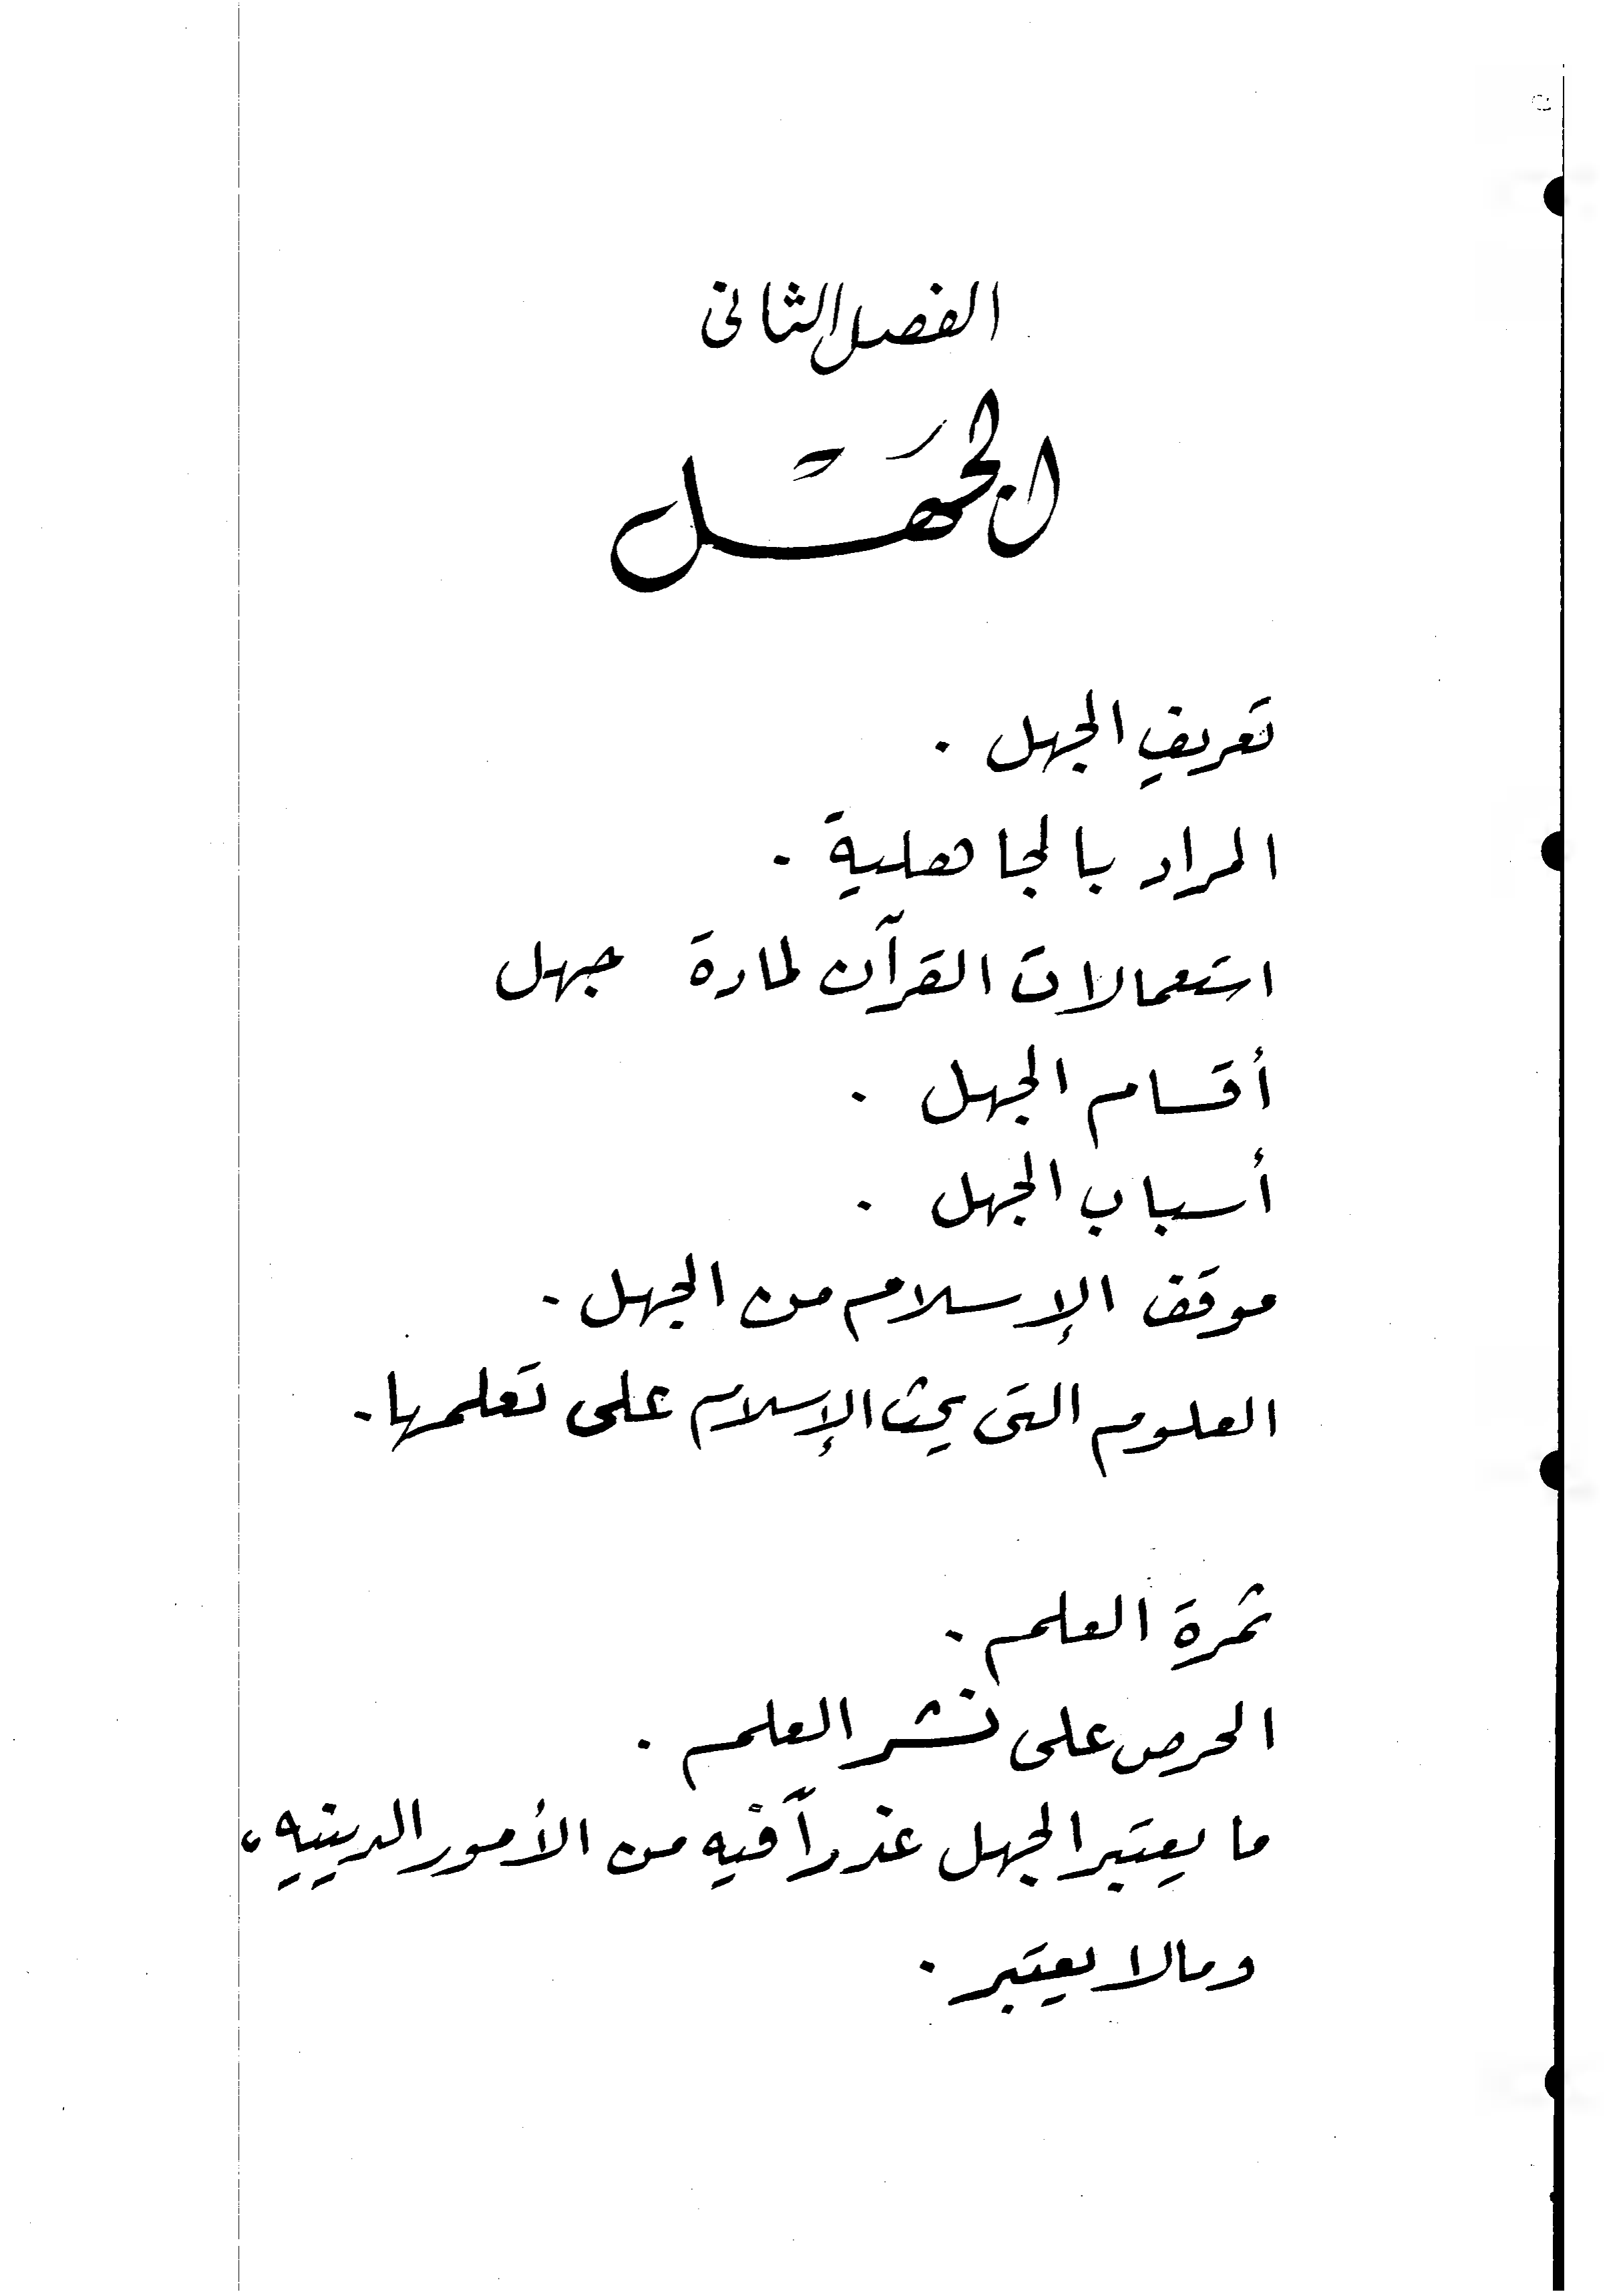 الفصل الثانى
الجهل
تعريف الجهل .
المراد بالجاهلية .
استعمالات القرآن لمادة جهل
أقسام الجهل .
أسباب الجهل .
موقف الإسلام من الجهل .
العلوم التى يحث الإسلام على تعلمها .
ثمرة العلم .
الحرص على نشر العلم .
ما يعتبر الجهل عذراً فيه من الأمور الدينيه ،
ومالا يعتبر .